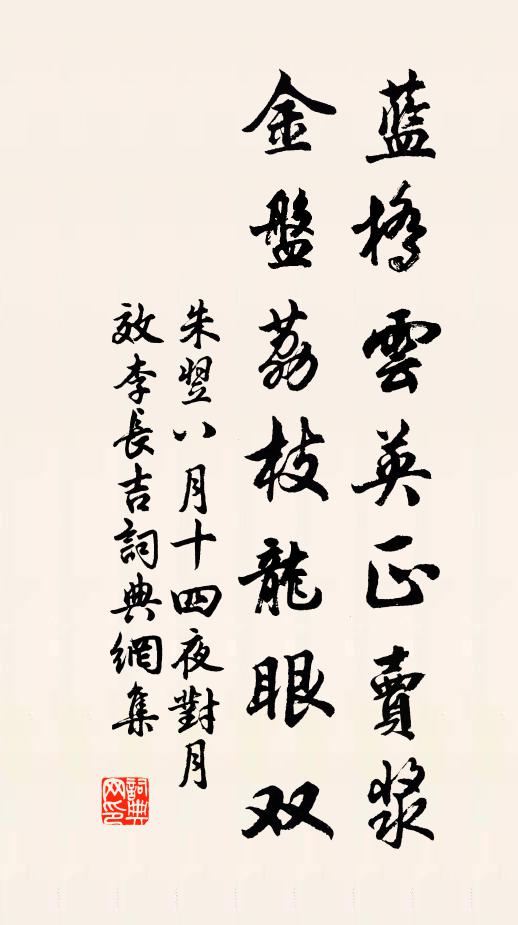 藍橋雲英正賣漿
金盤荔枝龍眼双
朱翌八月十四夜對月
效李長吉詞典網集
詞典網印